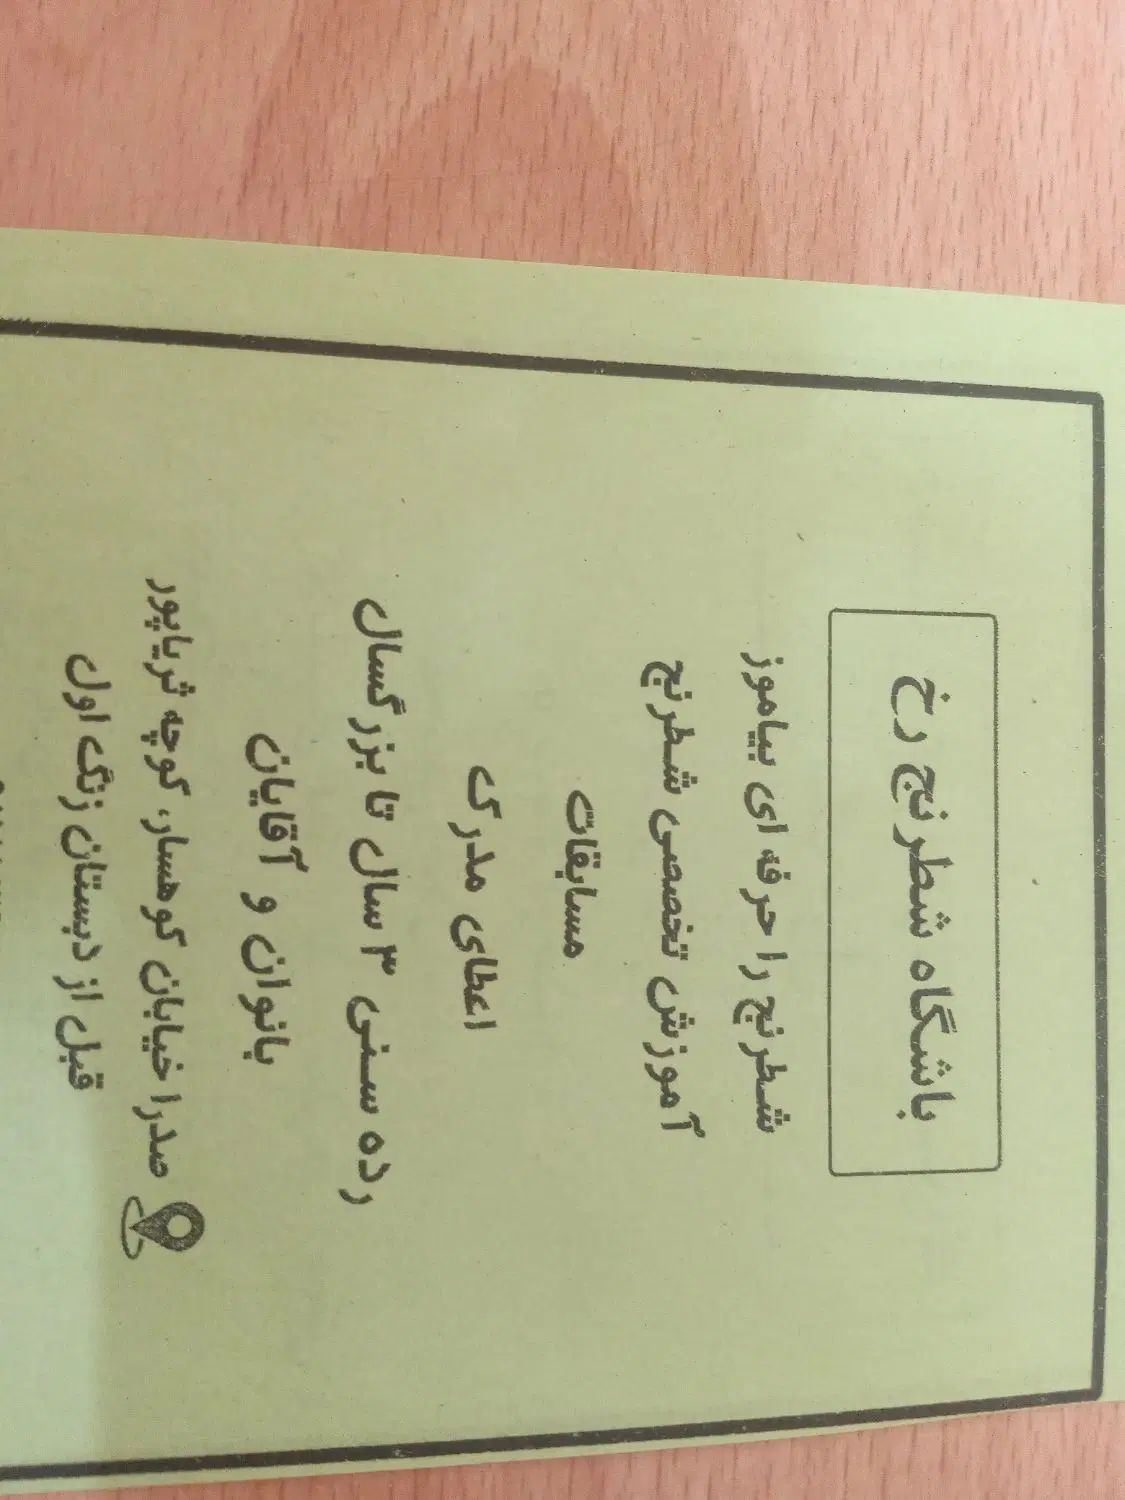 باشگاه شطرنج رخ
شطرنج را حرفه ای بیاموز
آموزش تخصصی شطرنج
مسابقات
اعطای مدرک
رده سنی ۳ سال تا بزرگسال
بانوان و آقایان
صدرا خیابان کوهسار، کوچه ثریاپور
قبل از دبستان زنگ اول